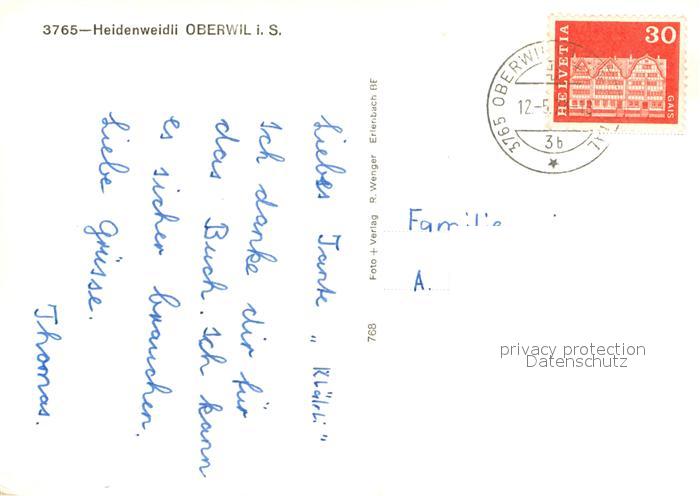 3765—Heidenweidli OBERWIL i. S.
Liebes Tante „ Klärli "
Ich danke dir für
das Buch. Ich kann
es sicher brauchen.
Liebe Grüsse.
Thomas.
768 Foto + Verlag R. Wenger Erlenbach BE
HELVETIA
30
GAIS
3765 OBERWIL
12.-5.
3b
Familie
A.
privacy protection
Datenschutz